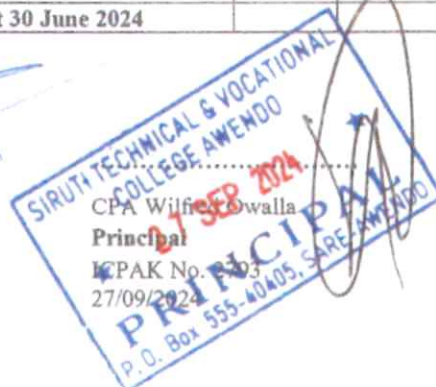 t 30 June 2024
SIRUTI TECHNICAL & VOCATIONAL
COLLEGE AWENDO
27 SEP 2024
PRINCIPAL
P. O. Box 555-40405, SARE-AWENDO
CPA Wilfred Owalla
Principal
ICPAK No.
27/09/2024